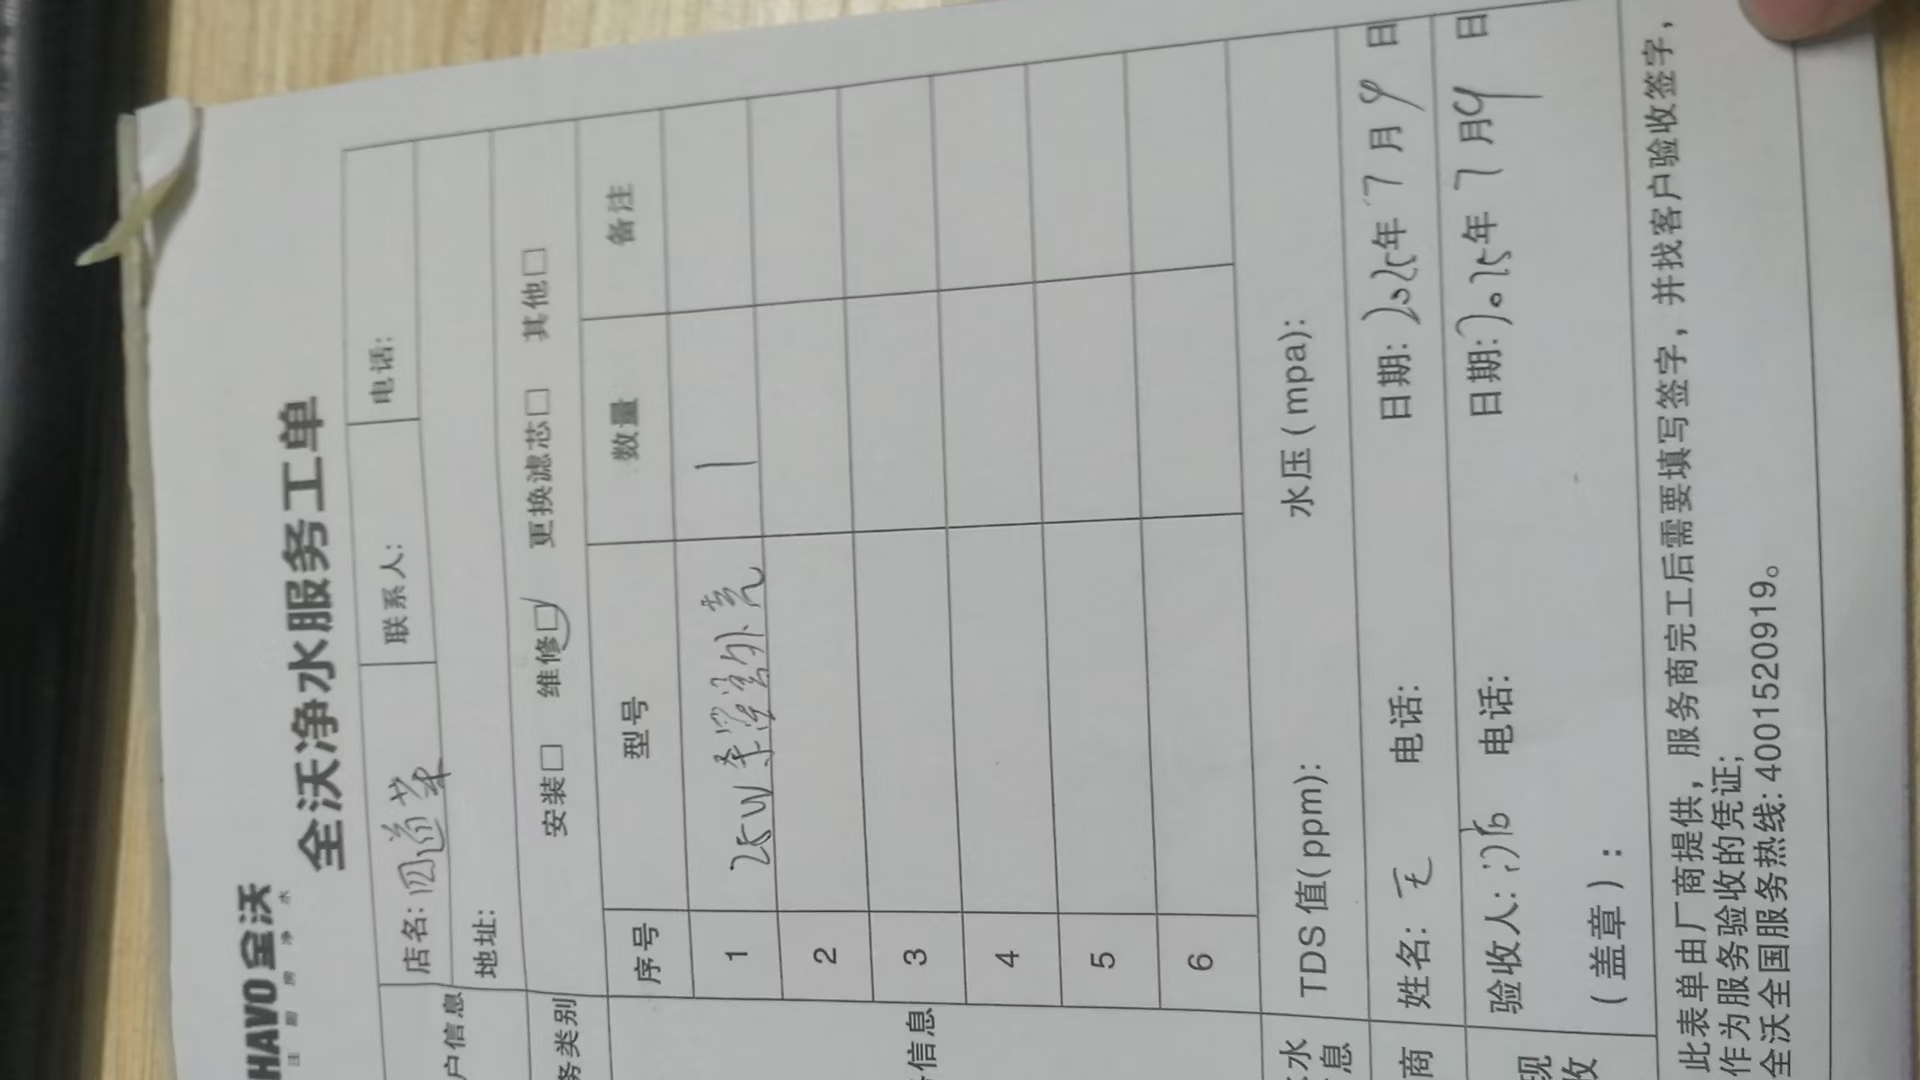 HAVO 全沃
注 厨 房 净 水
全沃净水服务工单
户信息 店名: 四道菜 联系人: 电话:
地址:
务类别 安装□ 维修□ 更换滤芯□ 其他□
信息 序号 型号 数量 备注
1 25W杀菌器外壳 1
2
3
4
5
6
水 TDS 值(ppm): 水压(mpa):
息
商 姓名: 电话: 日期: 2025年7月9日
现 验收人: 电话: 日期: 2025年7月9日
收 (盖章):
此表单由厂商提供，服务商完工后需要填写签字，并找客户验收签字，
作为服务验收的凭证;
全沃全国服务热线: 4001520919。